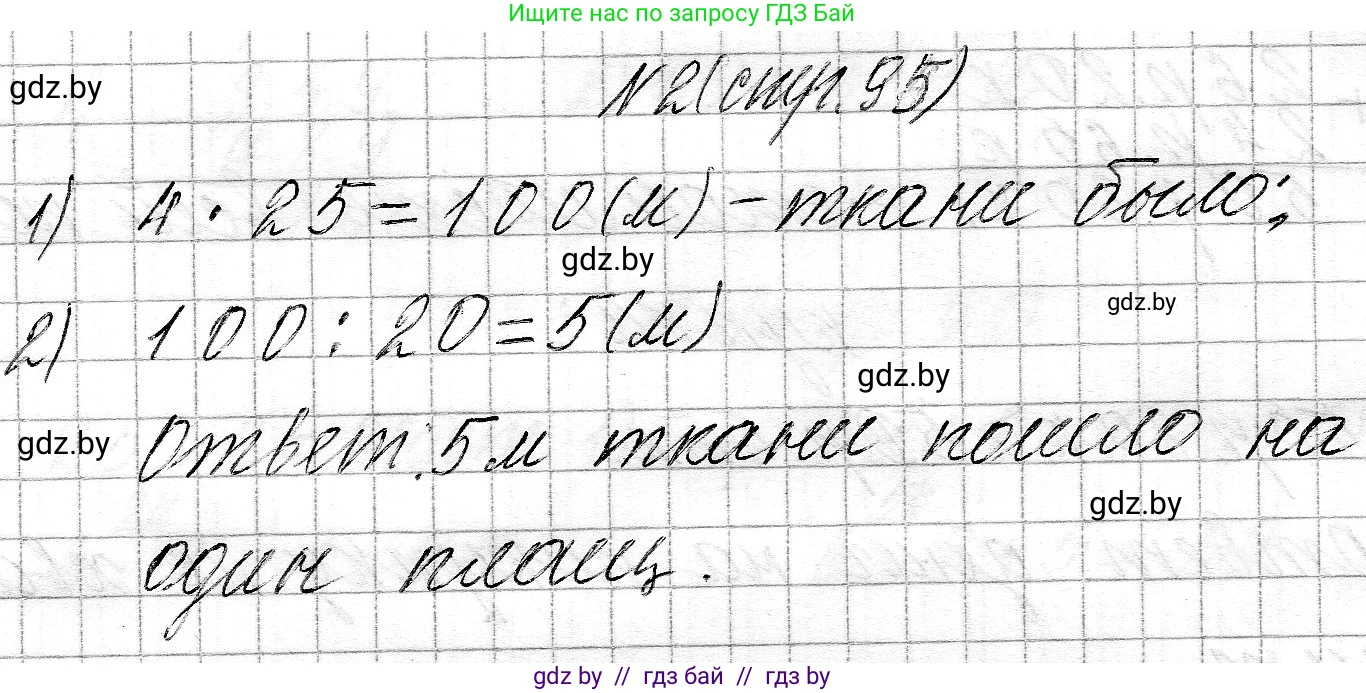 Ищите нас по запросу ГДЗ Бай
gdz.by
№2 (стр. 95)
1) 4 · 25 = 100 (м) - ткани было;
gdz.by
gdz.by
2) 100 : 20 = 5 (м)
gdz.by
gdz.by
Ответ: 5 м ткани пошло на
gdz.by
один плащ.
gdz by // гдз бай // гдз by